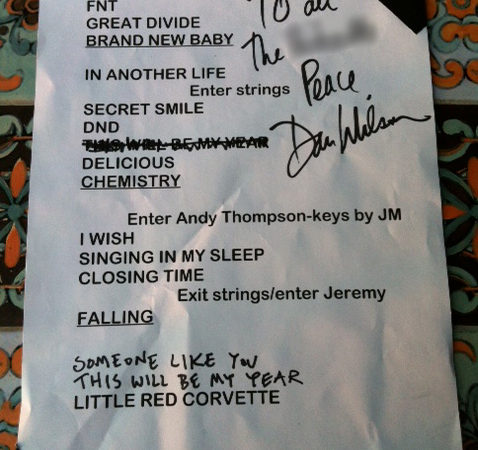 FNT
GREAT DIVIDE
BRAND NEW BABY
To all
The
Peace.
Dan Wilson
IN ANOTHER LIFE
Enter strings
SECRET SMILE
DND
THIS WILL BE MY YEAR
DELICIOUS
CHEMISTRY
Enter Andy Thompson-keys by JM
I WISH
SINGING IN MY SLEEP
CLOSING TIME
Exit strings/enter Jeremy
FALLING
SOMEONE LIKE YOU
THIS WILL BE MY YEAR
LITTLE RED CORVETTE